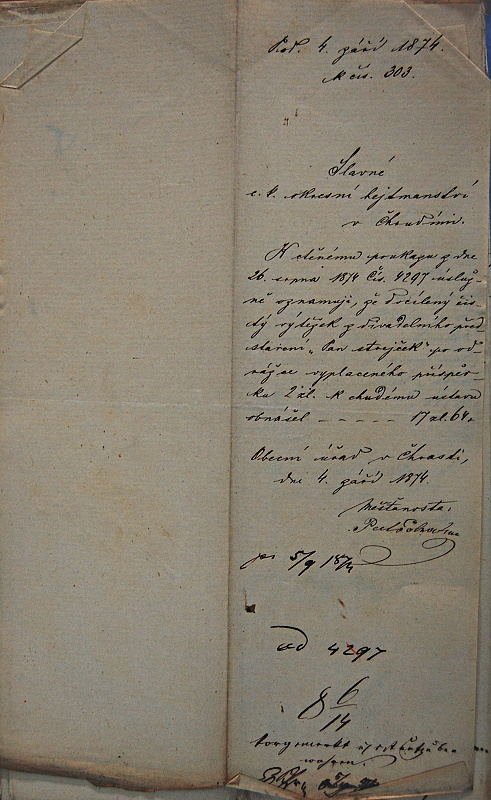 Pod. 4. září 1874.
k čís. 303.
Slavné
c. k. okresní hejtmanství
v Chrudimi.
K ctěnému poukazu z dne
26. srpna 1874 Čís. 4297 úsluž-
ně oznamuji, že docílený čis-
tý výtěžek z divadelního před
stavení „Pan strejček" po od-
rážce vyplaceného příspěv-
ku 2 zl. k chudému ústavu
obnášel - - - - - 17 zl. 64
Obecní úřad v Chrasti,
dne 4. září 1874.
Měšťanosta:
5/9
ad 4297
8 6/14